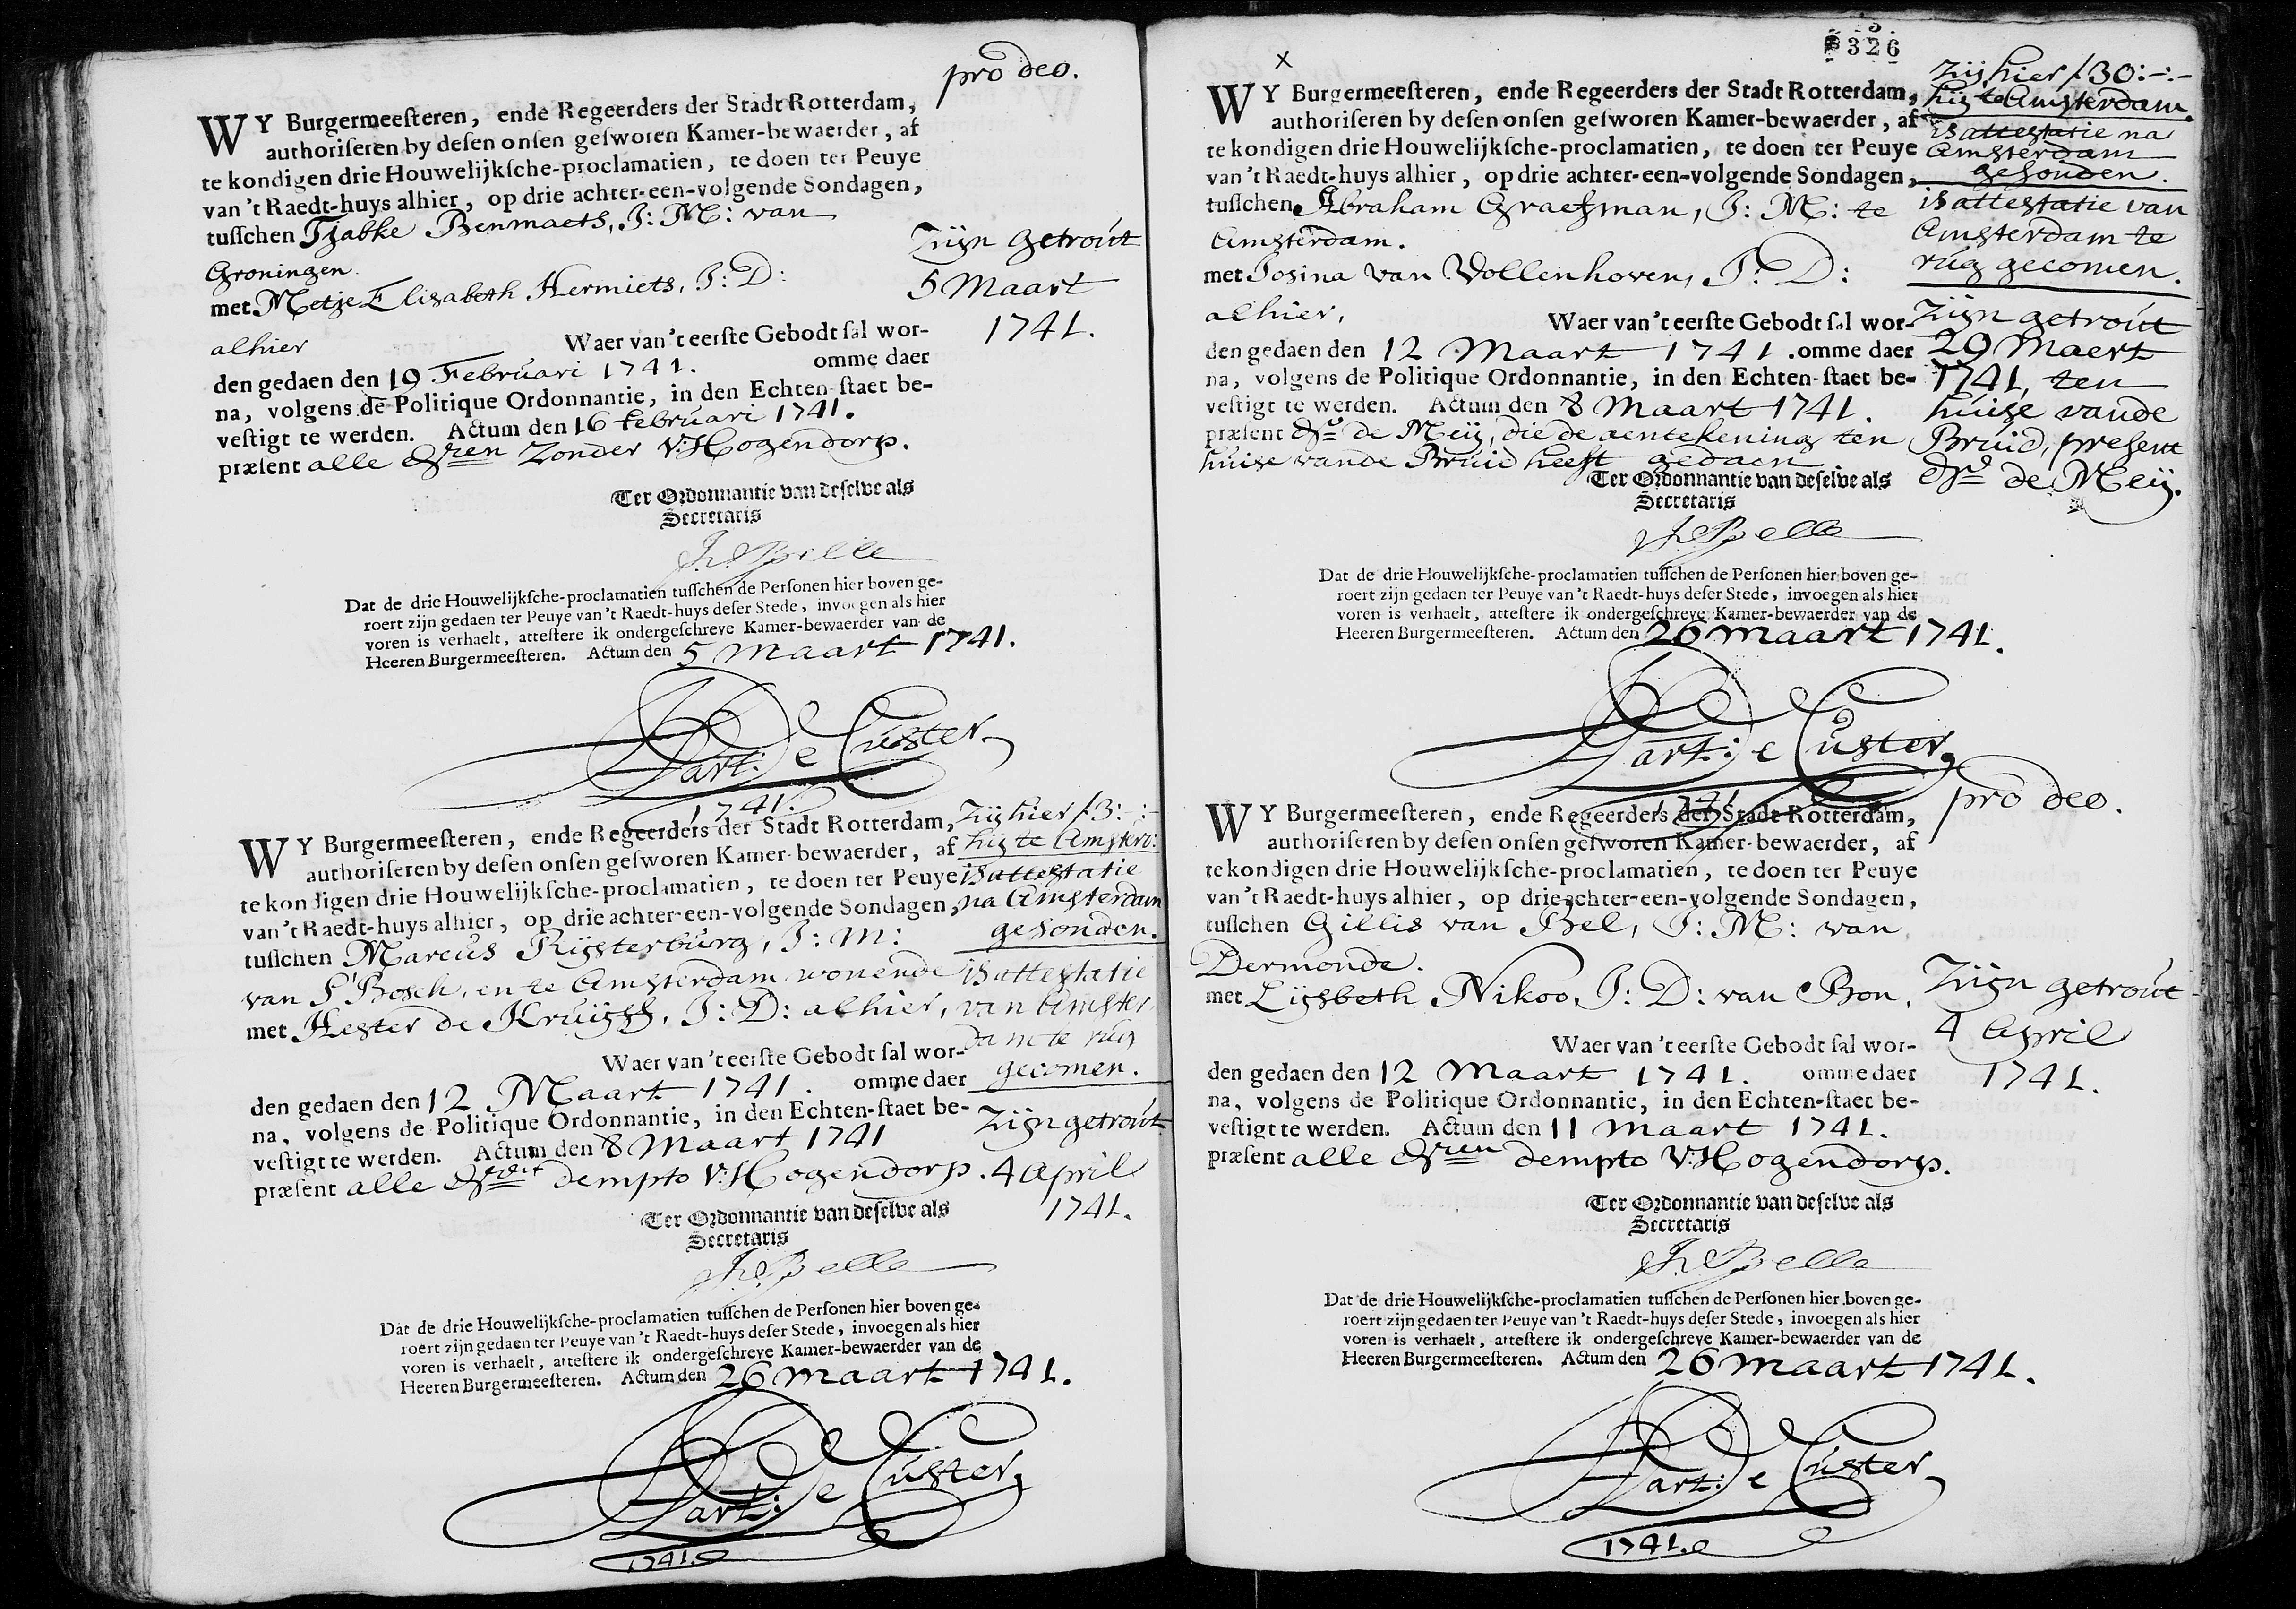 pro deo.
WY Burgermeesteren, ende Regeerders der Stadt Rotterdam,
authoriseren by desen onsen gesworen Kamer-bewaerder, af
te kondigen drie Houwelijksche-proclamatien, te doen ter Peuye
van 't Raedt-huys alhier, op drie achter-een-volgende Sondagen,
tusschen Tjabke Benmaets, J: M: van
Groningen.
met Metje Elisabeth Hermiets, J: D:
alhier
Waer van 't eerste Gebodt sal wor-
den gedaen den 19 Februari 1741. omme daer
na, volgens de Politique Ordonnantie, in den Echten-staet be-
vestigt te werden. Actum den 16 februari 1741.
præsent alle Hren Zonder V: Hogendorp.
Zijn getrout
5 Maart
1741.
Ter Ordonnantie van deselve als
Secretaris
Dat de drie Houwelijksche-proclamatien tusschen de Personen hier boven ge-
roert zijn gedaen ter Peuye van 't Raedt-huys deser Stede, invoegen als hier
voren is verhaelt, attestere ik ondergeschreve Kamer-bewaerder van de
Heeren Burgermeesteren. Actum den 5 maart 1741.
Bart: de Custer
1741.
WY Burgermeesteren, ende Regeerders der Stadt Rotterdam,
authoriseren by desen onsen gesworen Kamer-bewaerder, af
te kondigen drie Houwelijksche-proclamatien, te doen ter Peuye
van 't Raedt-huys alhier, op drie achter-een-volgende Sondagen,
tusschen Marcus Rijsterburg, J: M:
van S'Bosch, en te Amsterdam wonende
met Hester de Kruijff, J: D: alhier,
Waer van 't eerste Gebodt sal wor-
den gedaen den 12 Maart 1741. omme daer
na, volgens de Politique Ordonnantie, in den Echten-staet be-
vestigt te werden. Actum den 8 Maart 1741
præsent alle Hren dempto V: Hogendorp.
Zij hier f 3:-:-
hij te Amsterd:
is attestatie
na Amsterdam
gesonden.
is attestatie
van Amster
dam te rug
gecomen.
Zijn getrout
4 April
1741.
Ter Ordonnantie van deselve als
Secretaris
Dat de drie Houwelijksche-proclamatien tusschen de Personen hier boven ge-
roert zijn gedaen ter Peuye van 't Raedt-huys deser Stede, invoegen als hier
voren is verhaelt, attestere ik ondergeschreve Kamer-bewaerder van de
Heeren Burgermeesteren. Actum den 26 maart 1741.
Bart: de Custer
1741.
326
x
WY Burgermeesteren, ende Regeerders der Stadt Rotterdam,
authoriseren by desen onsen gesworen Kamer-bewaerder, af
te kondigen drie Houwelijksche-proclamatien, te doen ter Peuye
van 't Raedt-huys alhier, op drie achter-een-volgende Sondagen,
tusschen Abraham Graefsman, J: M: te
Amsterdam.
met Josina van Vollenhoven, J: D:
alhier,
Waer van 't eerste Gebodt sal wor-
den gedaen den 12 Maart 1741. omme daer
na, volgens de Politique Ordonnantie, in den Echten-staet be-
vestigt te werden. Actum den 8 Maart 1741.
præsent Hr de Meij, die de aentekening ten
huise vande Bruid heeft gedaen
Zij hier f 30:-:-
hij te Amsterdam.
is attestatie na
Amsterdam
gesonden.
is attestatie van
Amsterdam te
rug gecomen.
Zijn getrout
29 Maert
1741, ten
huise vande
Bruid, present
Hr de Meij.
Ter Ordonnantie van deselve als
Secretaris
Dat de drie Houwelijksche-proclamatien tusschen de Personen hier boven ge-
roert zijn gedaen ter Peuye van 't Raedt-huys deser Stede, invoegen als hier
voren is verhaelt, attestere ik ondergeschreve Kamer-bewaerder van de
Heeren Burgermeesteren. Actum den 26 maart 1741.
Bart: de Custer
1741
pro deo.
WY Burgermeesteren, ende Regeerders der Stadt Rotterdam,
authoriseren by desen onsen gesworen Kamer-bewaerder, af
te kondigen drie Houwelijksche-proclamatien, te doen ter Peuye
van 't Raedt-huys alhier, op drie achter-een-volgende Sondagen,
tusschen Gillis van Bel, J: M: van
Dermonde.
met Lijsbeth Nikoo, J: D: van Bon,
Waer van 't eerste Gebodt sal wor-
den gedaen den 12 Maart 1741. omme daer
na, volgens de Politique Ordonnantie, in den Echten-staet be-
vestigt te werden. Actum den 11 maart 1741.
præsent alle Hren dempto V: Hogendorp.
Zijn getrout
4 April
1741.
Ter Ordonnantie van deselve als
Secretaris
Dat de drie Houwelijksche-proclamatien tusschen de Personen hier boven ge-
roert zijn gedaen ter Peuye van 't Raedt-huys deser Stede, invoegen als hier
voren is verhaelt, attestere ik ondergeschreve Kamer-bewaerder van de
Heeren Burgermeesteren. Actum den 26 maart 1741.
Bart: de Custer
1741.